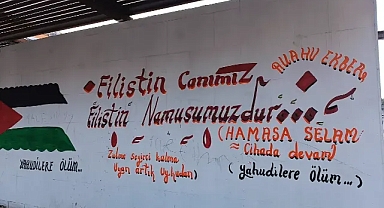 Filistin Canımız
Filistin Namusumuzdur....
ALLAHU EKBER
(HAMASA SELAM
Cihada devam)
Zulme seyirci kalma
Uyan artık uykudan)
(Yahudilere ölüm...)
YAHUDİLERE ÖLÜM...